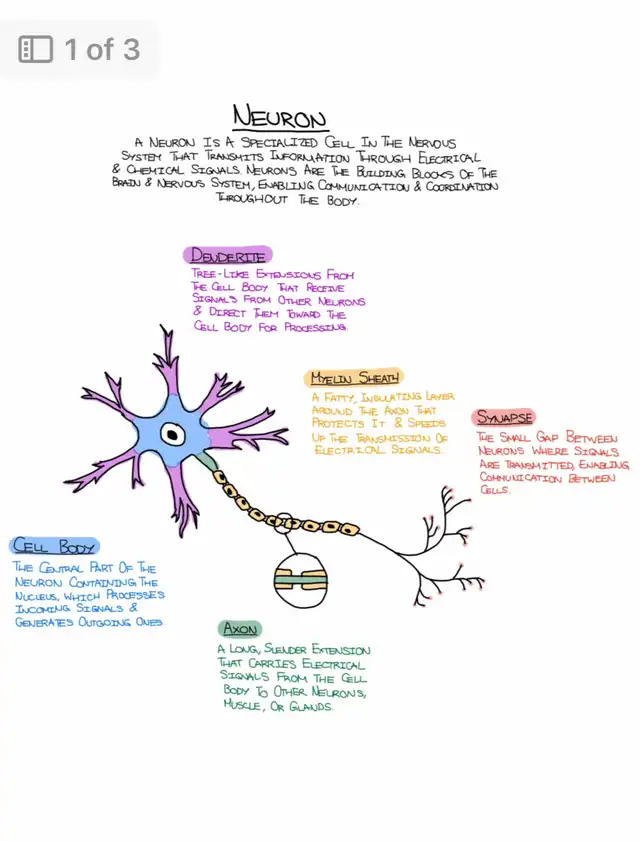 1 of 3
NEURON
A NEURON IS A SPECIALIZED CELL IN THE NERVOUS
SYSTEM THAT TRANSMITS INFORMATION THROUGH ELECTRICAL
& CHEMICAL SIGNALS. NEURONS ARE THE BUILDING BLOCKS OF THE
BRAIN & NERVOUS SYSTEM, ENABLING COMMUNICATION & COORDINATION
THROUGHOUT THE BODY.
DENDERITE
TREE-LIKE EXTENSIONS FROM
THE CELL BODY THAT RECEIVE
SIGNALS FROM OTHER NEURONS
& DIRECT THEM TOWARD THE
CELL BODY FOR PROCESSING.
MYELIN SHEATH
A FATTY, INSULATING LAYER
AROUND THE AXON THAT
PROTECTS IT & SPEEDS
UP THE TRANSMISSION OF
ELECTRICAL SIGNALS.
SYNAPSE
THE SMALL GAP BETWEEN
NEURONS WHERE SIGNALS
ARE TRANSMITTED, ENABLING
COMMUNICATION BETWEEN
CELLS.
CELL BODY
THE CENTRAL PART OF THE
NEURON CONTAINING THE
NUCLEUS, WHICH PROCESSES
INCOMING SIGNALS &
GENERATES OUTGOING ONES
AXON
A LONG, SLENDER EXTENSION
THAT CARRIES ELECTRICAL
SIGNALS FROM THE CELL
BODY TO OTHER NEURONS,
MUSCLE, OR GLANDS.